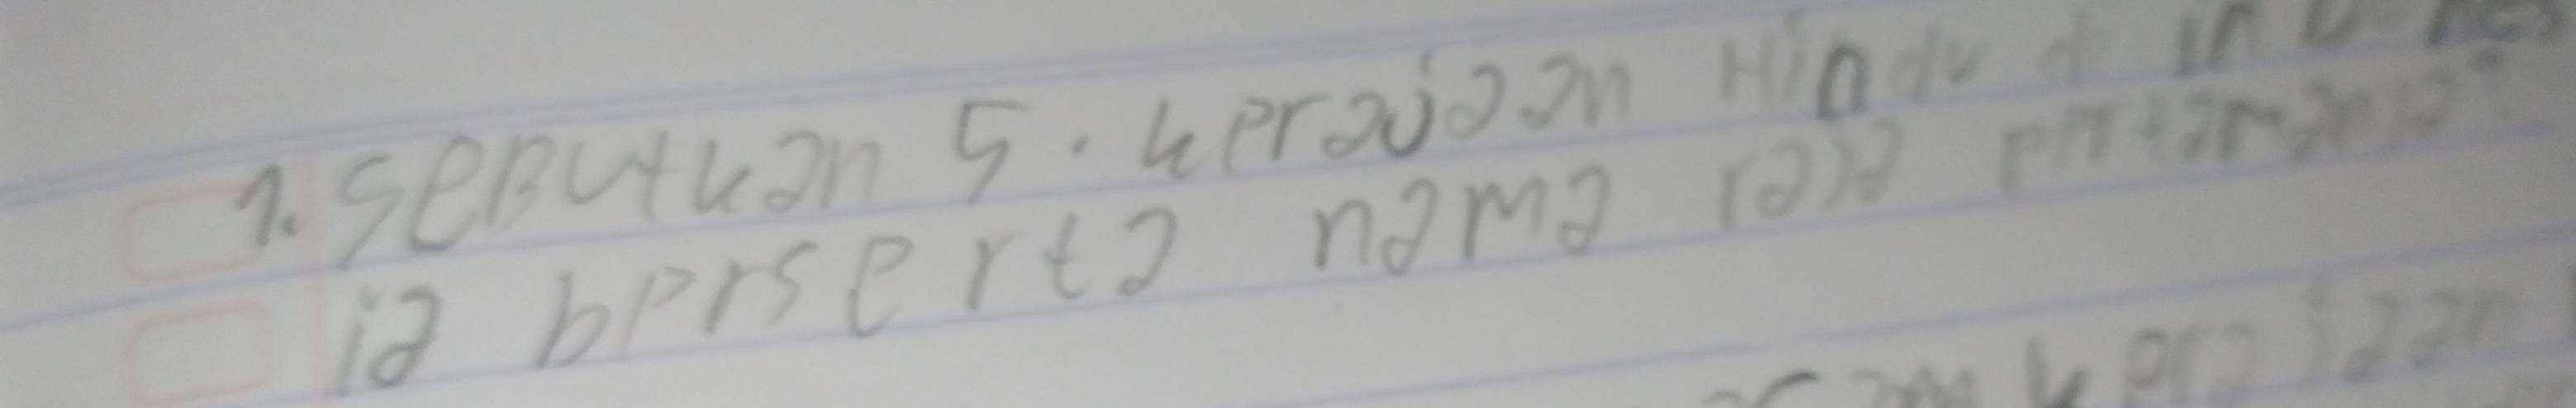 1. SEBUtkan 5. kerajaan Hindu di indones
ia berserta nama raja pertamanya
kerajaan